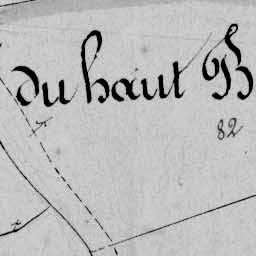 du haut B
82